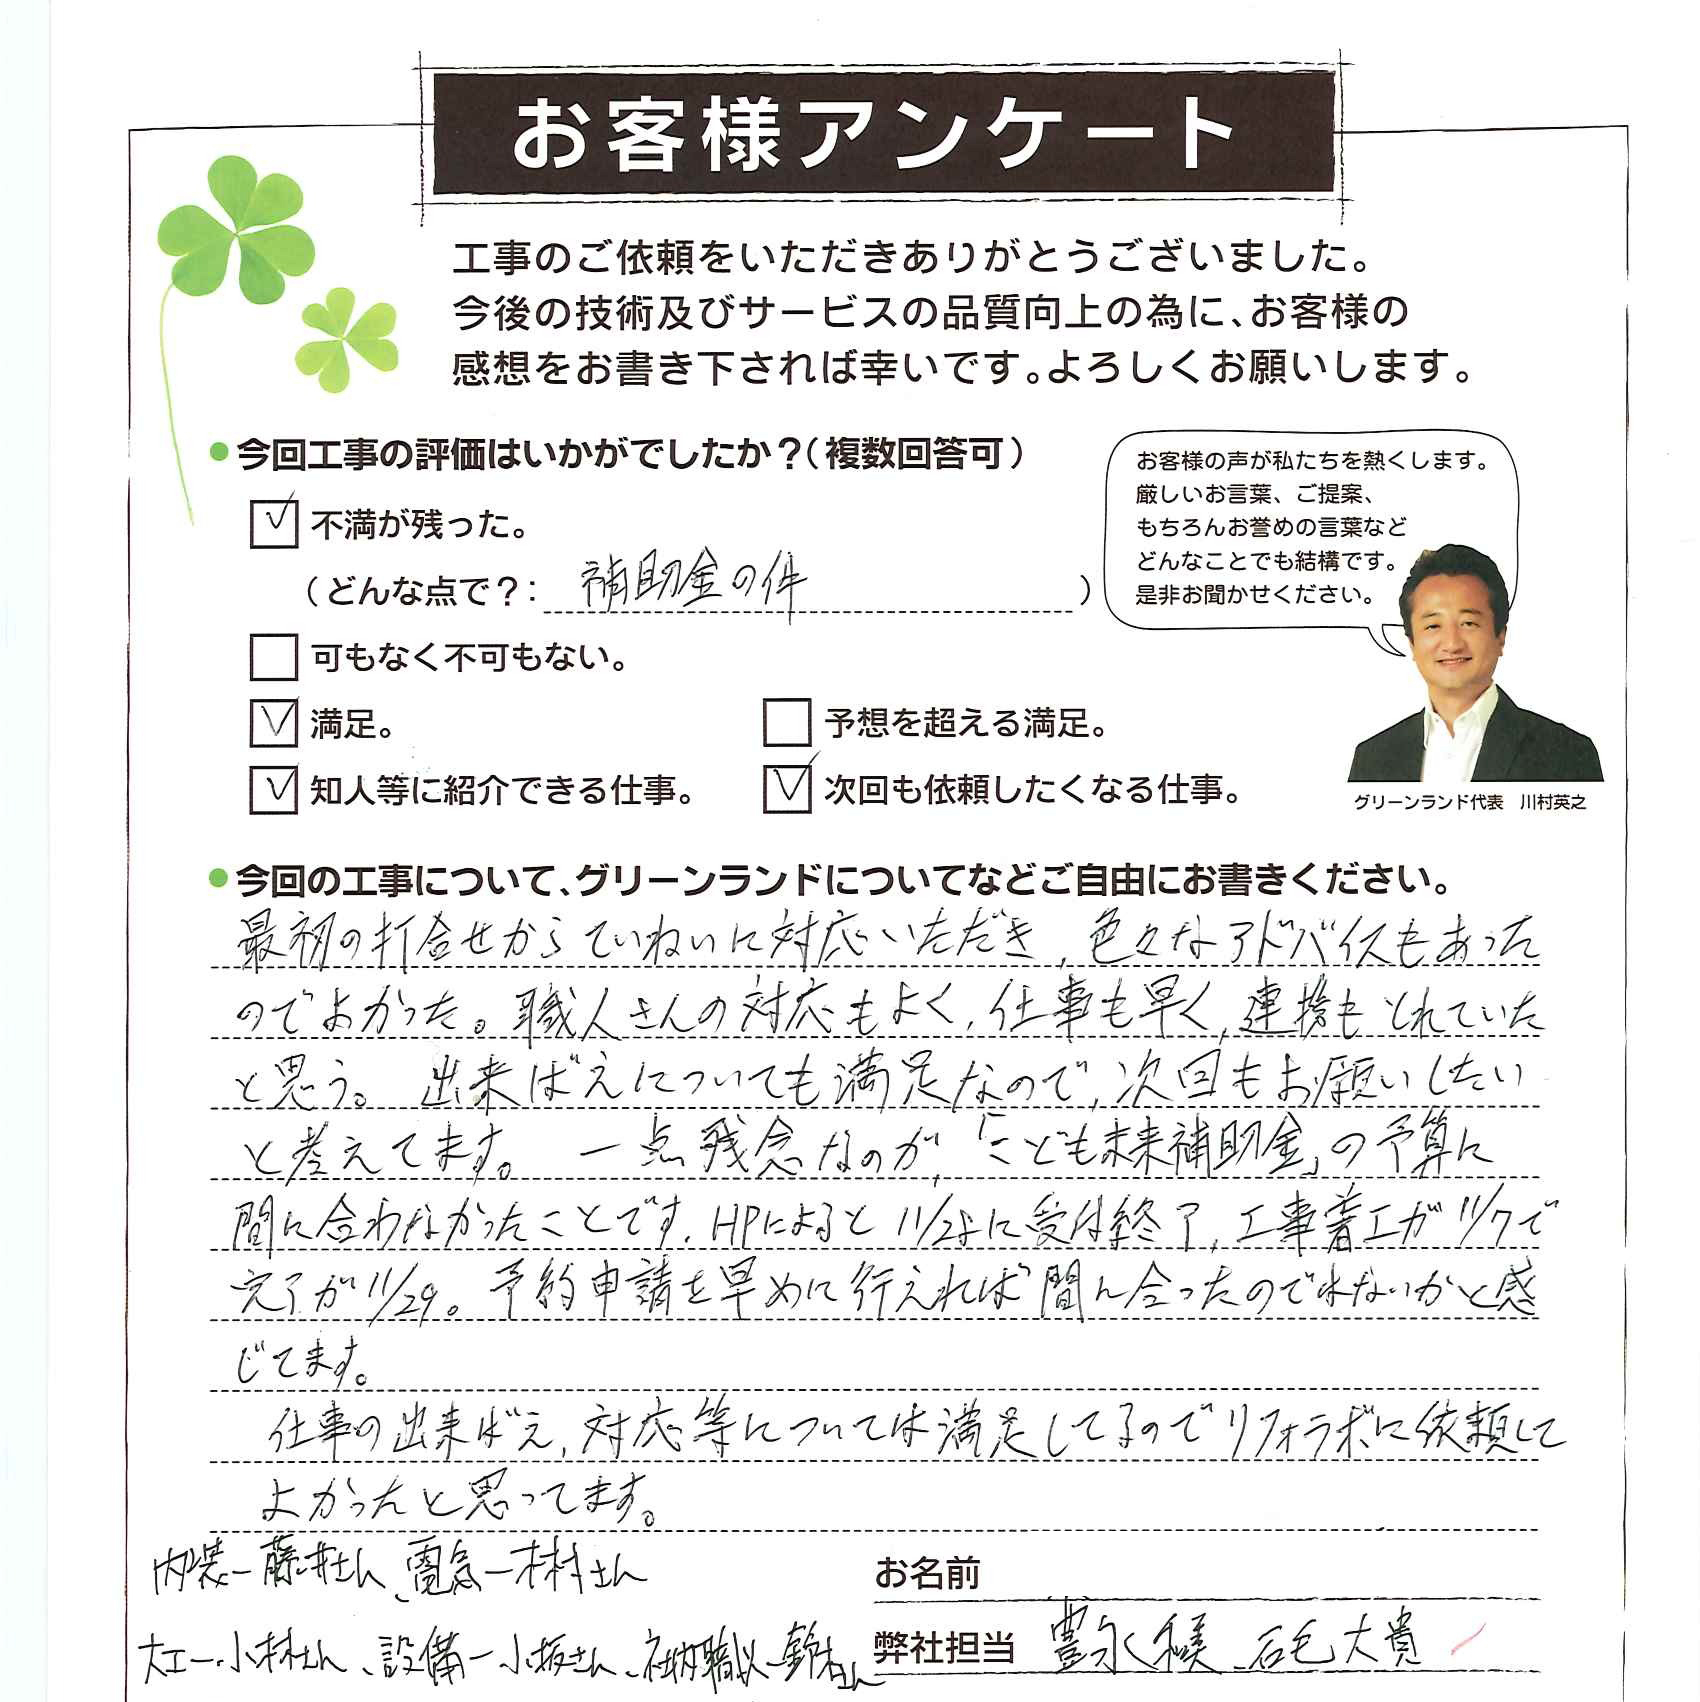 お客様アンケート
工事のご依頼をいただきありがとうございました。
今後の技術及びサービスの品質向上の為に、お客様の
感想をお書き下されば幸いです。よろしくお願いします。
●今回工事の評価はいかがでしたか?(複数回答可)
不満が残った。
(どんな点で?: 補助金の件 )
可もなく不可もない。
満足。
予想を超える満足。
知人等に紹介できる仕事。
次回も依頼したくなる仕事。
お客様の声が私たちを熱くします。
厳しいお言葉、ご提案、
もちろんお誉めの言葉など
どんなことでも結構です。
是非お聞かせください。
グリーンランド代表 川村英之
●今回の工事について、グリーンランドについてなどご自由にお書きください。
最初の打合せからていねいに対応いただき、色々なアドバイスもあった
のでよかった。職人さんの対応もよく、仕事も早く、連携もとれていた
と思う。出来ばえについても満足なので、次回もお願いしたい
と考えてます。一点残念なのが、「こども未来補助金」の予算に
間に合わなかったことです。HPによると11/28に受付終了、工事着工が11/7で
完了が11/29。予約申請を早めに行えれば間に合ったのでれないかと感
じてます。
仕事の出来ばえ、対応等については満足してるのでリフォラボに依頼して
よかったと思ってます。
内装ー藤井さん、電気ー木村さん
大工ー小林さん、設備ー小坂さん、社内職人ー鈴木さん
お名前
弊社担当 豊永 石毛大貴